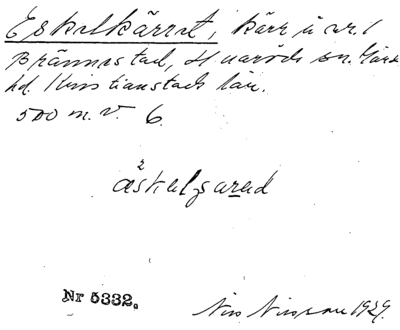 Eskilkärret, kärr å nr. 1
Brännestad, Huaröds sn. Gärs
hd. Kristianstads län.
500 m. v. 6.
äskelzarad
Nr 5332.
Nils Nilsson 1929.